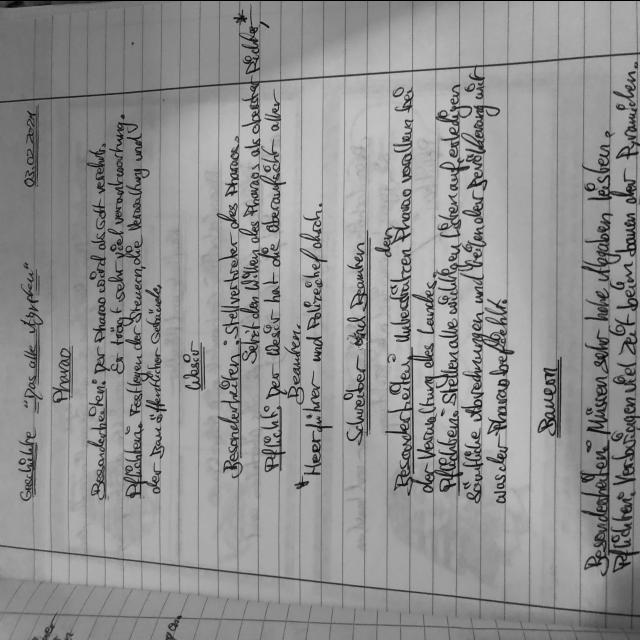 Geschichte "Das alte Ägypten" 03.02.2021
Pharao
Besonderheiten: Der Pharao wird als Gott verehrt.
Er trägt sehr viel verantwortung.
Pflichten: Festlegen der Steuern, die Verwaltung und
der Bau öffentlicher Gebäude.
Wesir
Besonderheiten: Stellvertreter des Pharaos.
Setzt den Willen des Pharaos als oberster Richter,*
Pflicht: Der Wesir hat die Oberaufsicht aller
Beamten.
*Heerführer und Polizeichef durch.
Schreiber und Beamten
Besonderheiten: Unterstützen den Pharao vorallem bei
der Verwaltung des Landes
Pflichten: Stellen alle wichtigen Listen auf, erledigen
sämtliche Abrechnungen und teilen der Bevölkerung mit
was der Pharao befiehlt.
Bauern
Besonderheiten: Müssen sehr hohe Abgaben leisten.
Pflichten: Verbringen viel Zeit beim bauen der Pyramiden.